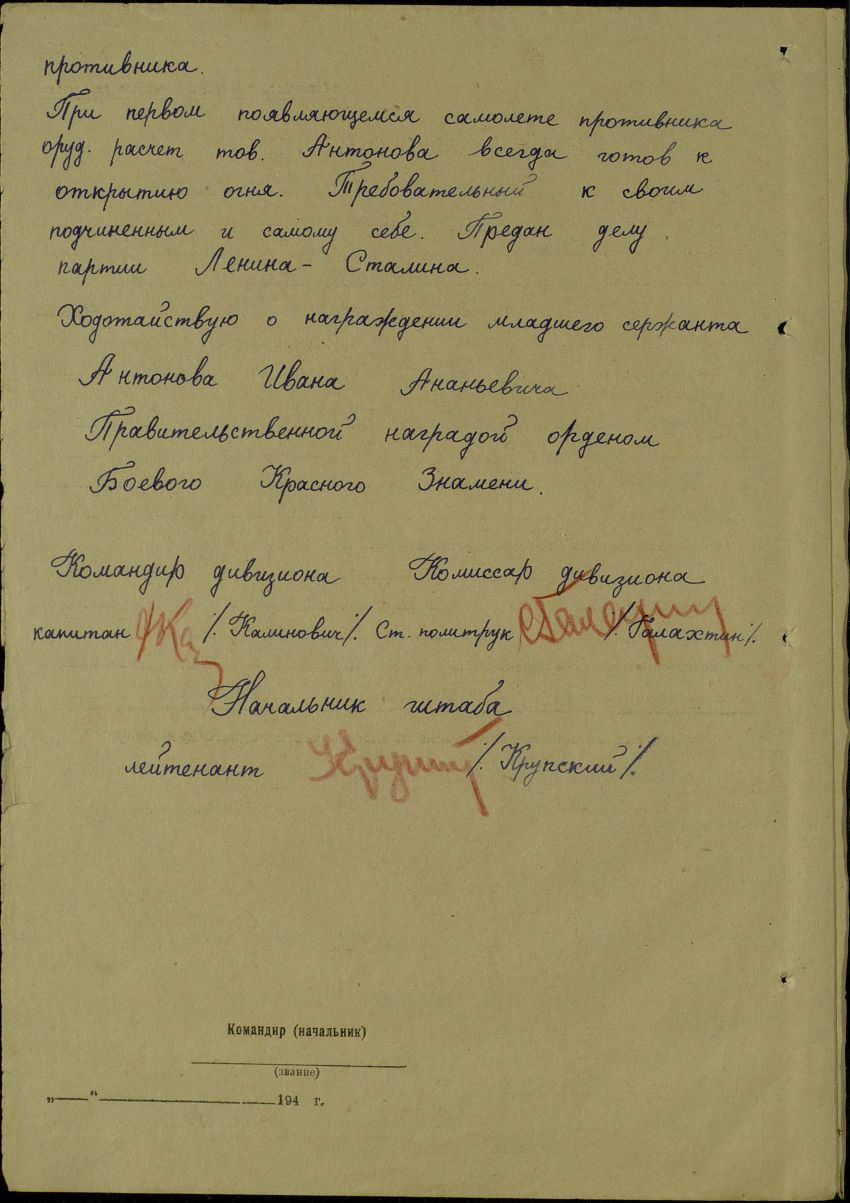 противника.
При первом появляющемся самолете противника
оруд. расчет тов. Антонова всегда готов к
открытию огня. Требовательный к своим
подчиненным и самому себе. Предан делу
партии Ленина - Сталина.
Ходотайствую о награждении младшего сержанта
Антонова Ивана Ананьевича
Правительственной наградой орденом
Боевого Красного Знамени.
Командир дивизиона Комиссар дивизиона
капитан /Калинович/. Ст. политрук /Галахтин/.
Начальник штаба
лейтенант /Крупский/.
Командир (начальник)
(звание)
„ — “ 194 г.